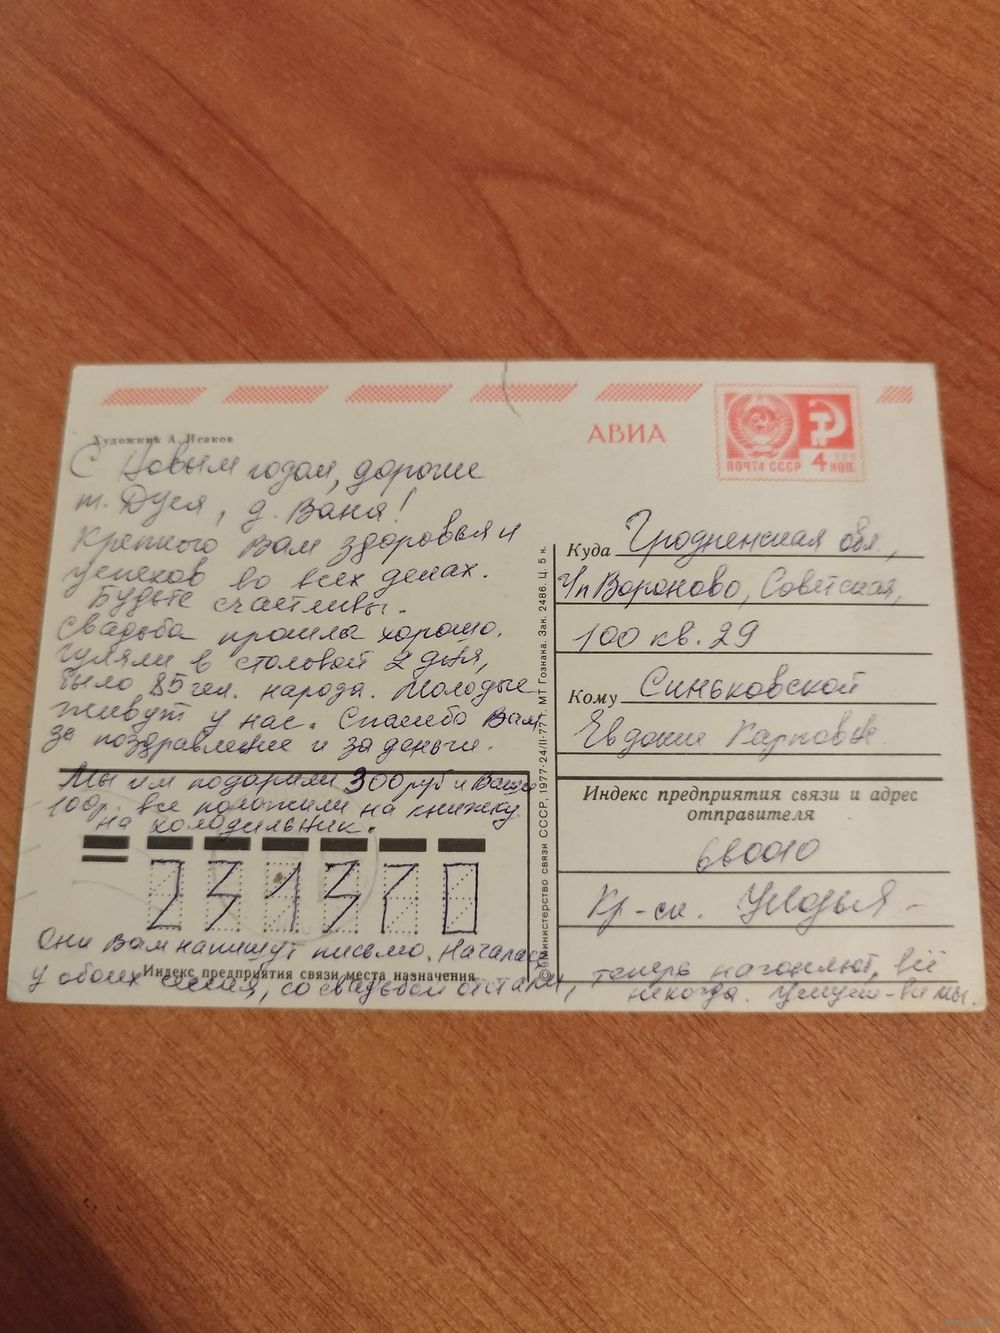 Художник А. Исаков
АВИА
ПОЧТА СССР 4 КОП.
С Новым годом, дорогие
т. Дуся, д. Ваня!
Крепкого Вам здоровья и
успехов во всех делах.
Будьте счастливы.
Свадьба прошла хорошо.
гуляли в столовой 2 дня,
было 85 чел. народа. Молодые
живут у нас. Спасибо Вам
за поздравление и за деньги.
Мы им подарили 300 руб и Ваши
100 р. все положили на книжку
на холодильник.
231370
Они Вам напишут письмо. Началась
Индекс предприятия связи места назначения
у обоих сессия, со свадьбой отстали, теперь нагоняют, всё
некогда. Целуем Вас мы.
© Министерство связи СССР, 1977-24/II-77 г. МТ Гознака. Зак. 2486. Ц. 5 к.
Куда Гродненская обл.,
Вороново, Советская,
100 кв. 29
Кому Синьковской
Евдокии Карповне
Индекс предприятия связи и адрес
отправителя
680010
Кр-ск.